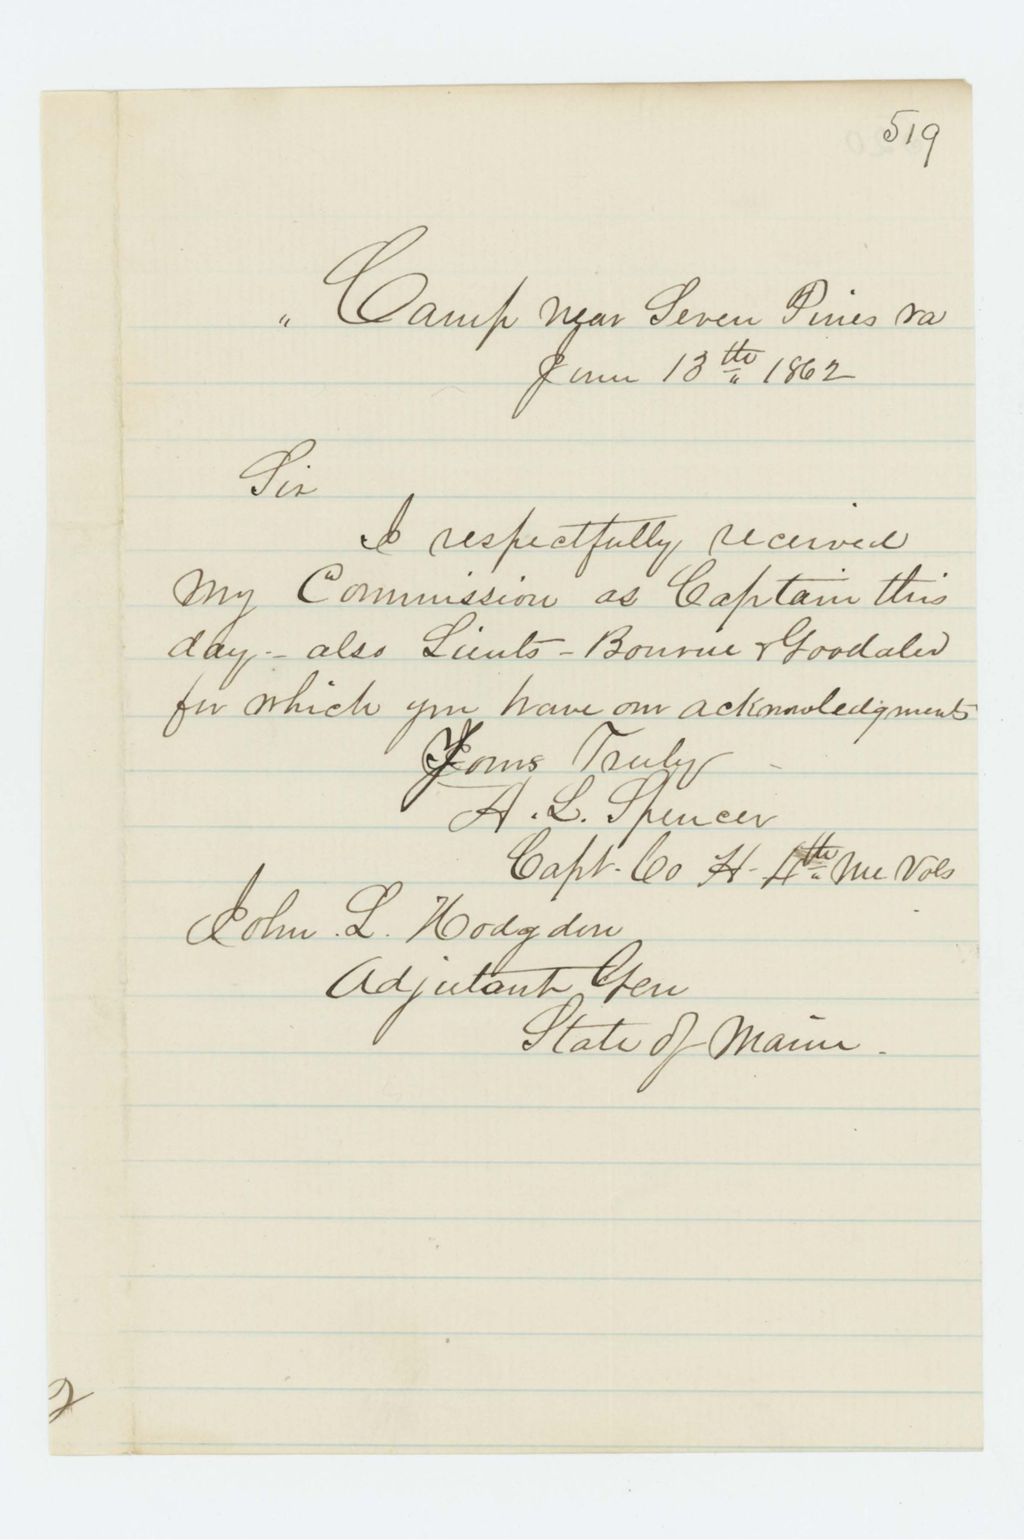 519
" Camp near Seven Pines Va
June 13th 1862
Sir
I respectfully received
my Commission as Captain this
day - also Lieuts - Bourne & Goodale
for which you have our acknowledgments
Yours Truly
A. L. Spencer
Capt. Co H - 4th Me Vols
John . L. Hodgdon
Adjutant Gen
State of Maine -
2